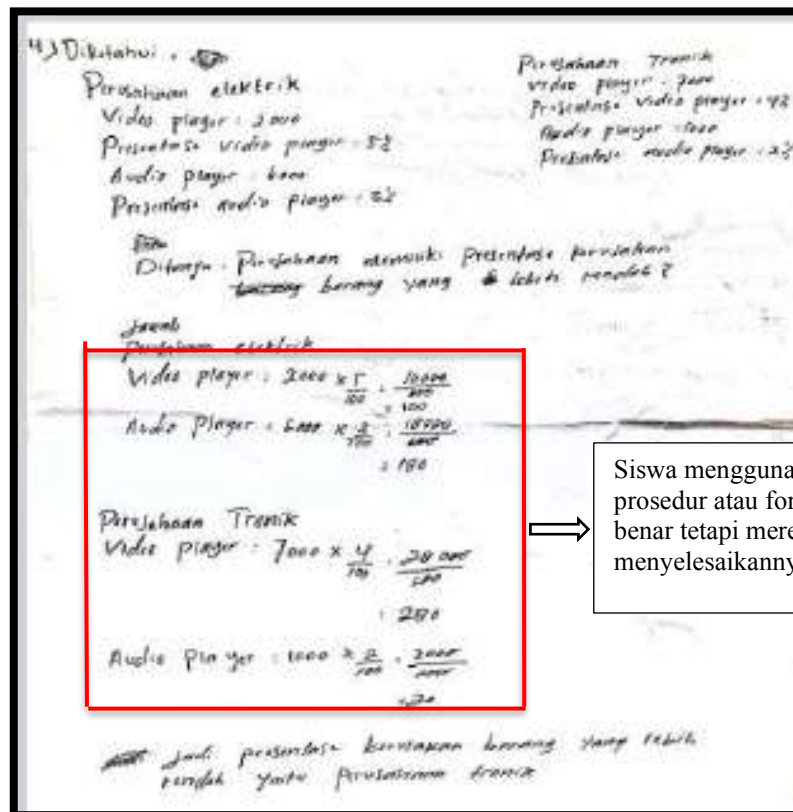 4.) Diketahui :
Perusahaan elektrik
Video player : 2000
Presentase video player : 5%
Audio player : 6000
Presentase audio player : 3%
Perusahaan Tronik
video player : 7000
Presentase video player : 4%
Audio player : 1000
Presentase audio player : 2%
Ditanya : Perusahaan memiliki presentase kerusakan
barang yang lebih rendah ?
Jawab
Perusahaan elektrik
Video player : 2000 x 5/100 = 10000/100
= 100
Audio Player : 6000 x 3/100 = 18000/100
= 180
Perusahaan Tronik
Video player : 7000 x 4/100 = 28000/100
= 280
Audio player : 1000 x 2/100 = 2000/100
= 20
Jadi presentase kerusakan barang yang lebih
rendah yaitu perusahaan tronik
Siswa mengguna
prosedur atau for
benar tetapi mere
menyelesaikanny